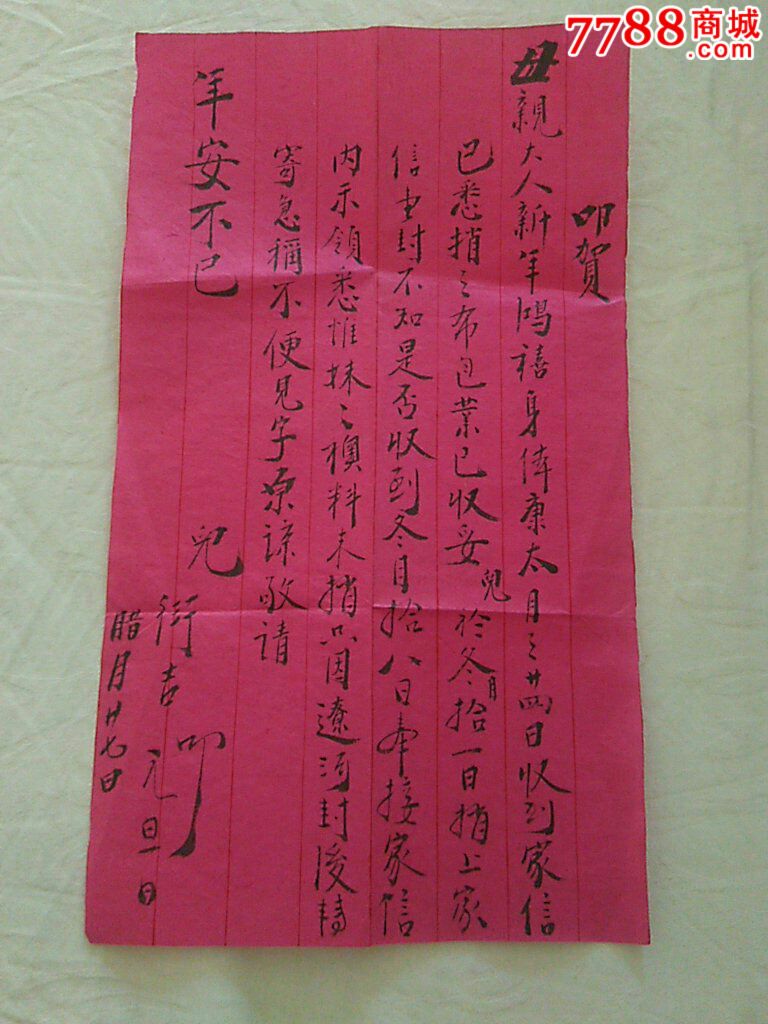 7788商城
.com
叩賀
母親大人新年鴻禧身体康太月之廿四日收到家信
已悉捎之布包業已收妥兒於冬月拾一日捎上家
信壹封不知是否收到冬月拾八日奉接家信
内示領悉惟妹之料未捎只因遼河封後轉
寄急稱不便見字原諒敬請
年安不已
兒
衍吉叩
元旦日
腊月廿七日